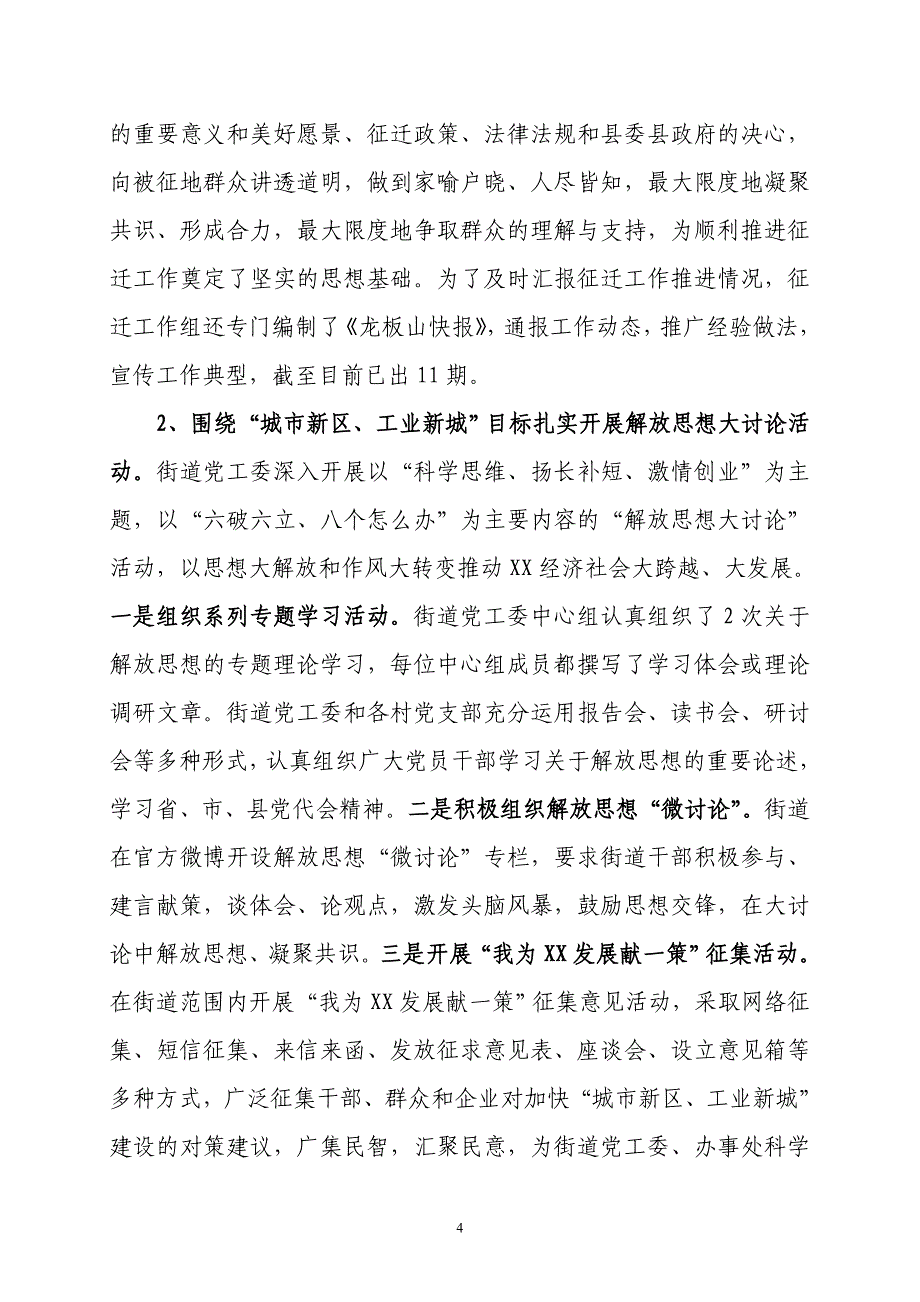 的重要意义和美好愿景、征迁政策、法律法规和县委县政府的决心，
向被征地群众讲透道明，做到家喻户晓、人尽皆知，最大限度地凝聚
共识、形成合力，最大限度地争取群众的理解与支持，为顺利推进征
迁工作奠定了坚实的思想基础。为了及时汇报征迁工作推进情况，征
迁工作组还专门编制了《龙板山快报》，通报工作动态，推广经验做法，
宣传工作典型，截至目前已出 11 期。
2、围绕“城市新区、工业新城”目标扎实开展解放思想大讨论活
动。街道党工委深入开展以“科学思维、扬长补短、激情创业”为主
题，以“六破六立、八个怎么办”为主要内容的“解放思想大讨论”
活动，以思想大解放和作风大转变推动 XX 经济社会大跨越、大发展。
一是组织系列专题学习活动。街道党工委中心组认真组织了 2 次关于
解放思想的专题理论学习，每位中心组成员都撰写了学习体会或理论
调研文章。街道党工委和各村党支部充分运用报告会、读书会、研讨
会等多种形式，认真组织广大党员干部学习关于解放思想的重要论述，
学习省、市、县党代会精神。二是积极组织解放思想“微讨论”。街道
在官方微博开设解放思想“微讨论”专栏，要求街道干部积极参与、
建言献策，谈体会、论观点，激发头脑风暴，鼓励思想交锋，在大讨
论中解放思想、凝聚共识。三是开展“我为 XX 发展献一策”征集活动。
在街道范围内开展“我为 XX 发展献一策”征集意见活动，采取网络征
集、短信征集、来信来函、发放征求意见表、座谈会、设立意见箱等
多种方式，广泛征集干部、群众和企业对加快“城市新区、工业新城”
建设的对策建议，广集民智，汇聚民意，为街道党工委、办事处科学
4